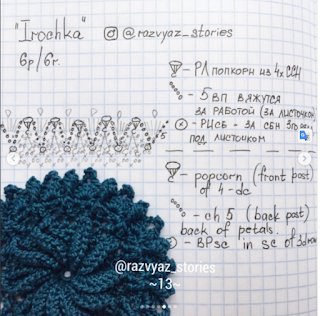 "Irochka" @razvyaz_stories
6р/6r.
- РЛ ПОПКОРН ИЗ 4х ССН
- 5 ВП ВЯЖУТСЯ
ЗА РАБОТОЙ (ЗА ЛИСТОЧКОМ)
- РЦСБ - ЗА СБН 3го
ПОД ЛИСТОЧКОМ
5
- popcorn (front post)
of 4-dc
- ch 5 (back post)
back of petals.
- BPsc in sc of 3d
@razvyaz_stories
~13~